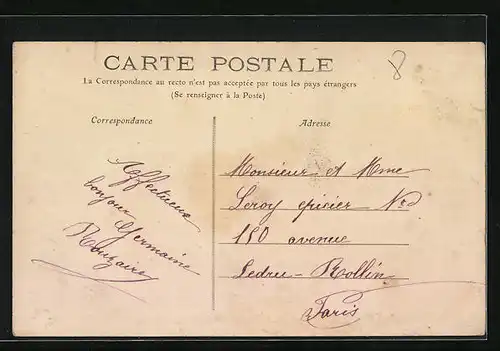 8
CARTE POSTALE
La Correspondance au recto n'est pas acceptée par tous les pays étrangers
(Se renseigner à la Poste)
Correspondance
Adresse
Affectueux
bonjour
Germaine
Monsieur et Mme
Leroy epicier No
150 avenue
Ledru-Rollin
Paris